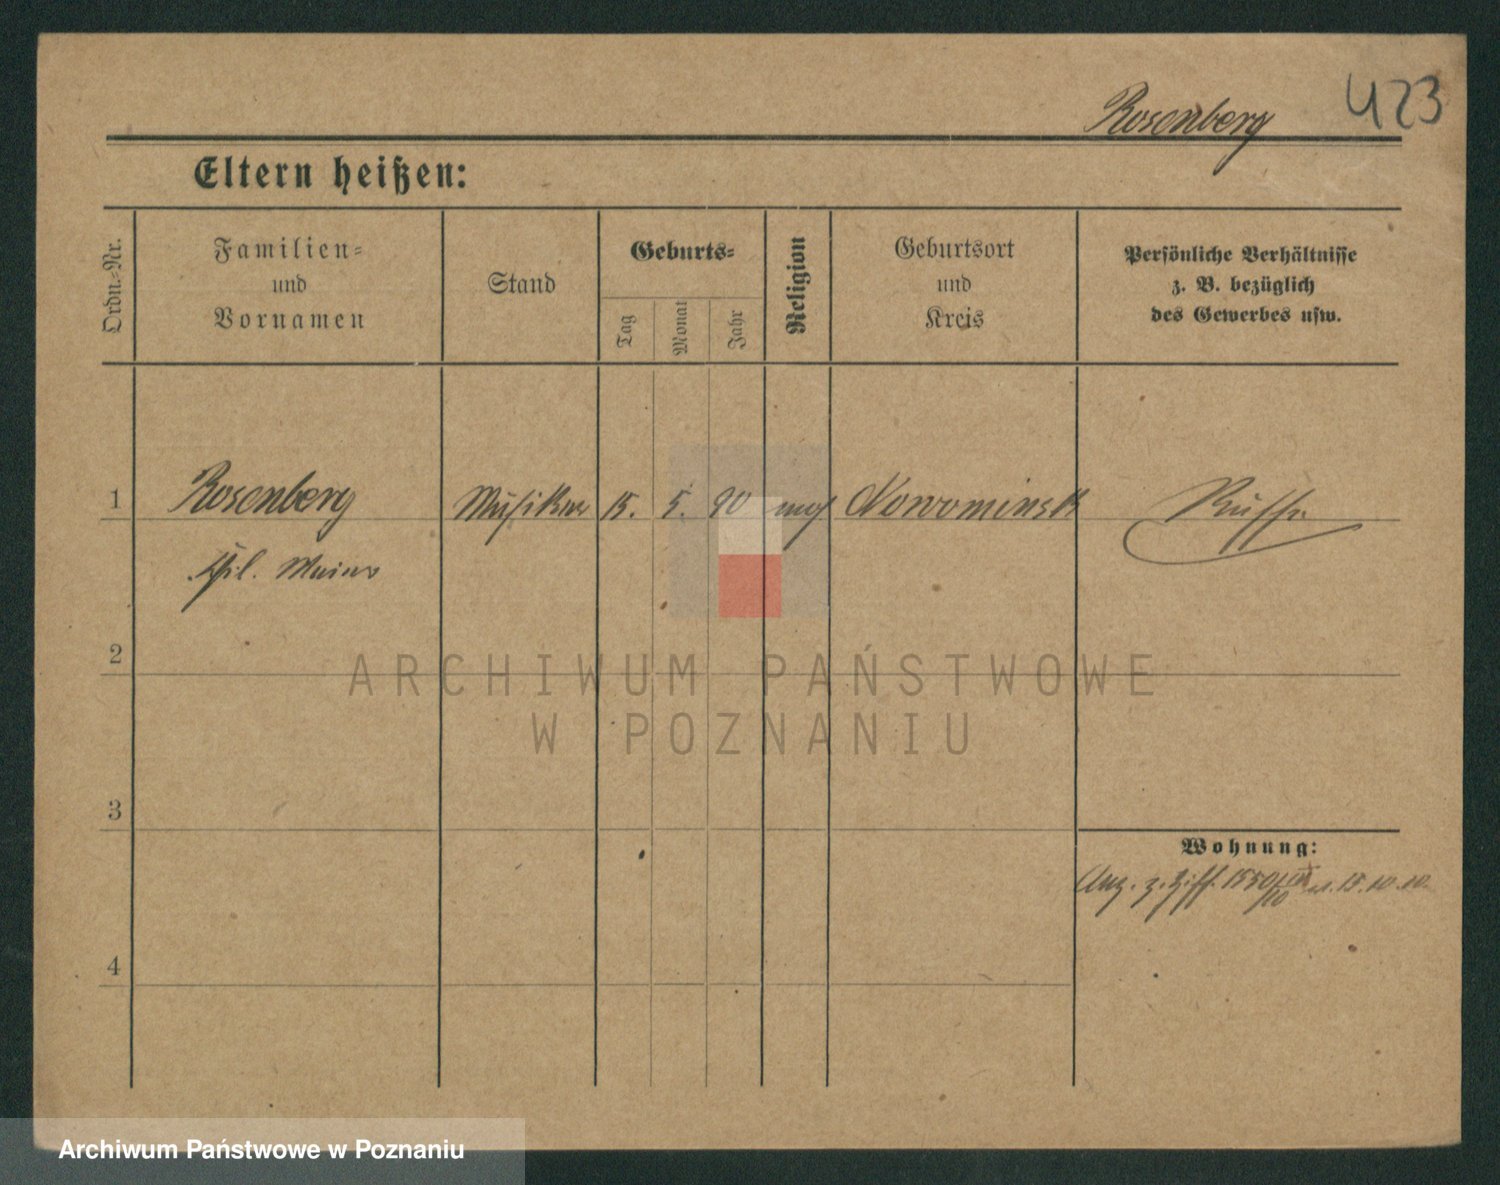 Rosenberg 423
Eltern heißen:
Ordn.-Nr.
Familien-
und
Vornamen
Stand
Geburts-
Tag
Monat
Jahr
Religion
Geburtsort
und
Kreis
Persönliche Verhältnisse
z. B. bezüglich
des Gewerbes usw.
1 Rosenberg Musiker 15. 5. 90 Nowominsk Russe
2
ARCHIWUM PAŃSTWOWE
W POZNANIU
3
Wohnung:
z. Ziff. 15.10.10.
4
Archiwum Państwowe w Poznaniu